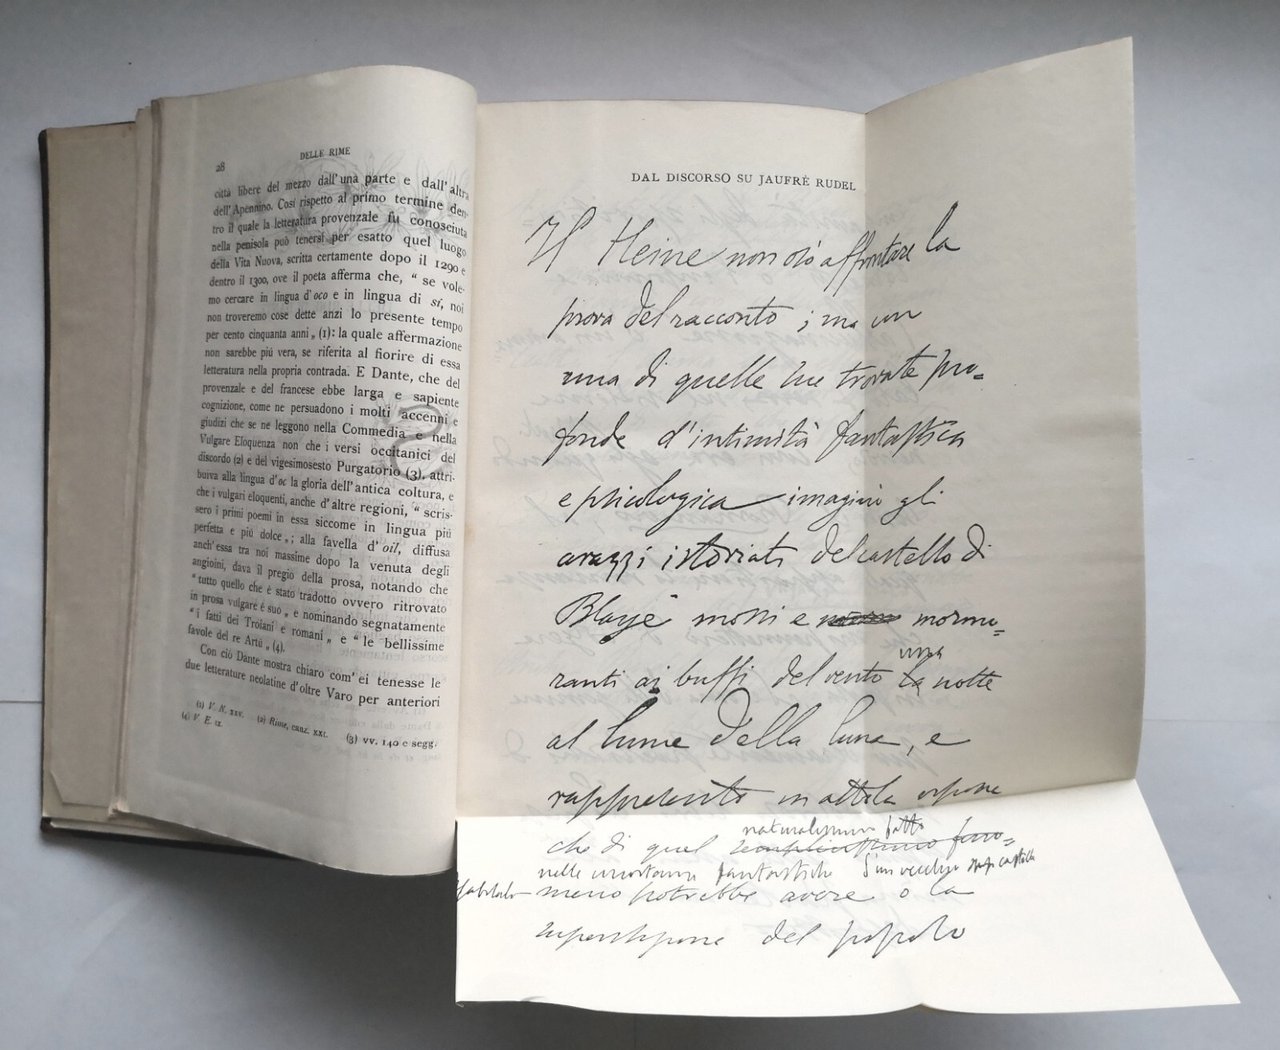 28
DELLE RIME
città libere del mezzo dall'una parte e dall'altra
dell'Apennino. Cosí rispetto al primo termine den-
tro il quale la letteratura provenzale fu conosciuta
nella penisola può tenersi per esatto quel luogo
della Vita Nuova, scritta certamente dopo il 1290 e
dentro il 1300, ove il poeta afferma che, “ se vole-
mo cercare in lingua d'oco e in lingua di sí, noi
non troveremo cose dette anzi lo presente tempo
per cento cinquanta anni „ (1): la quale affermazione
non sarebbe piú vera, se riferita al fiorire di essa
letteratura nella propria contrada. E Dante, che del
provenzale e del francese ebbe larga e sapiente
cognizione, come ne persuadono i molti accenni e
giudizi che se ne leggono nella Commedia e nella
Vulgare Eloquenza non che i versi occitanici del
discordo (2) e del vigesimosesto Purgatorio (3), attri-
buiva alla lingua d'oc la gloria dell'antica coltura, e
che i vulgari eloquenti, anche d'altre regioni, “ scris-
sero i primi poemi in essa siccome in lingua piú
perfetta e piú dolce „; alla favella d'oil, diffusa
anch'essa tra noi massime dopo la venuta degli
angioini, dava il pregio della prosa, notando che
“ tutto quello che è stato tradotto ovvero ritrovato
in prosa vulgare è suo „ e nominando segnatamente
“ i fatti dei Troiani e romani „ e “ le bellissime
favole del re Artú „ (4).
Con ciò Dante mostra chiaro com'ei tenesse le
due letterature neolatine d'oltre Varo per anteriori
(1) V. N. XXV. (2) Rime, canz. XXI. (3) vv. 140 e segg.
(4) V. E. IX.
DAL DISCORSO SU JAUFRÈ RUDEL
Il Heine non osò affrontare la
prova del racconto ; ma con
una di quelle sue trovate pro=
fonde d'intimità fantastica
e psicologica imaginò gli
arazzi istoriati del castello di
Blaye mossi e mormo=
ranti ai buffi del vento una notte
al lume della luna, e
rappresentò in attela
che di quel
naturalissimo fatto
nelle fantastiche d'un vecchio
meno potrebbe avere o la
superstizione del popolo